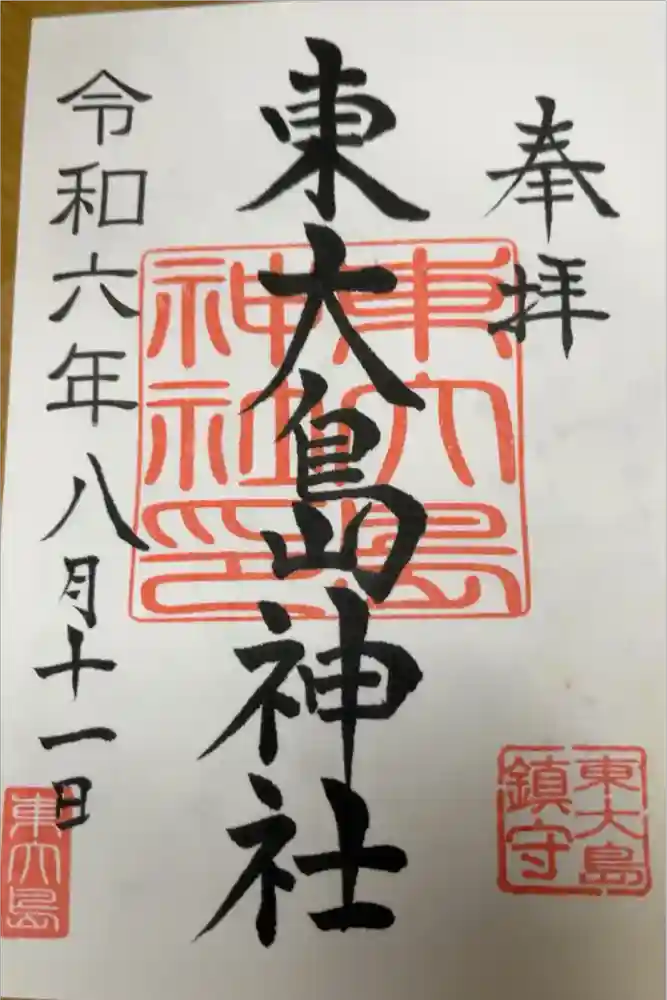 奉拝
東大島神社
令和六年八月十一日
東大島神社印
東大島鎮守
東大島